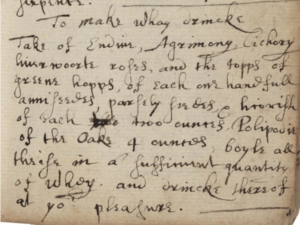 To make whay drincke
Take of Endive, Agrimony, Cichory
liverwoorte roses, and the topps of
greene hopps, of each one handfull
anniseedes, parsly seedes,
of each two ounces, Polipodie
of the Oake 4 ounces, boyle all
these in a sufficient quantity
of whey. and drincke thereof
at yo^r pleasure.